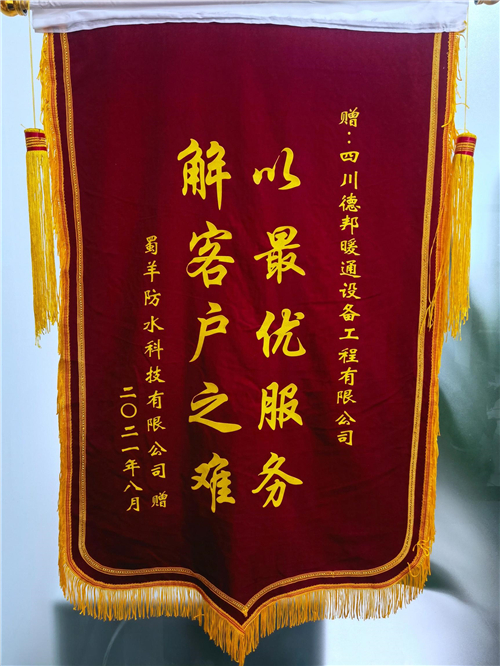 赠：四川德邦暖通设备工程有限公司
以最优服务
解客户之难
蜀羊防水科技有限公司 赠
二〇二一年八月